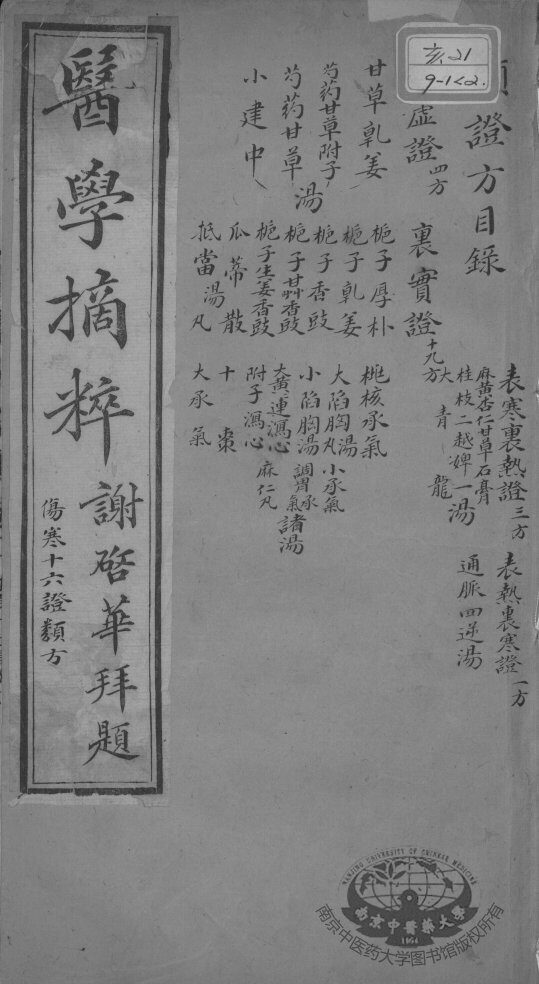 亥.21
9-1<2.
證方目錄
表寒裏熱證三方
麻黃杏仁甘草石膏
桂枝二越婢一湯
大青龍
表熱裏寒證一方
通脈四逆湯
虛證四方
甘草乹姜
芍药甘草附子
芍药甘草湯
小建中
裏實證十九方
梔子厚朴
梔子乹姜
梔子香豉
梔子甘艸香豉
梔子生姜香豉
瓜蒂散
抵當湯丸
桃核承氣
大陷胸湯丸
小承氣
小陷胸湯
調胃承氣
諸湯
大黃黄連瀉心
附子瀉心
麻仁丸
十棗
大承氣
醫學摘粹
謝啓華拜題
傷寒十六證類方
NANJING UNIVERSITY OF CHINESE MEDICINE
南京中醫藥大學
1954
南京中医药大学图书馆版权所有